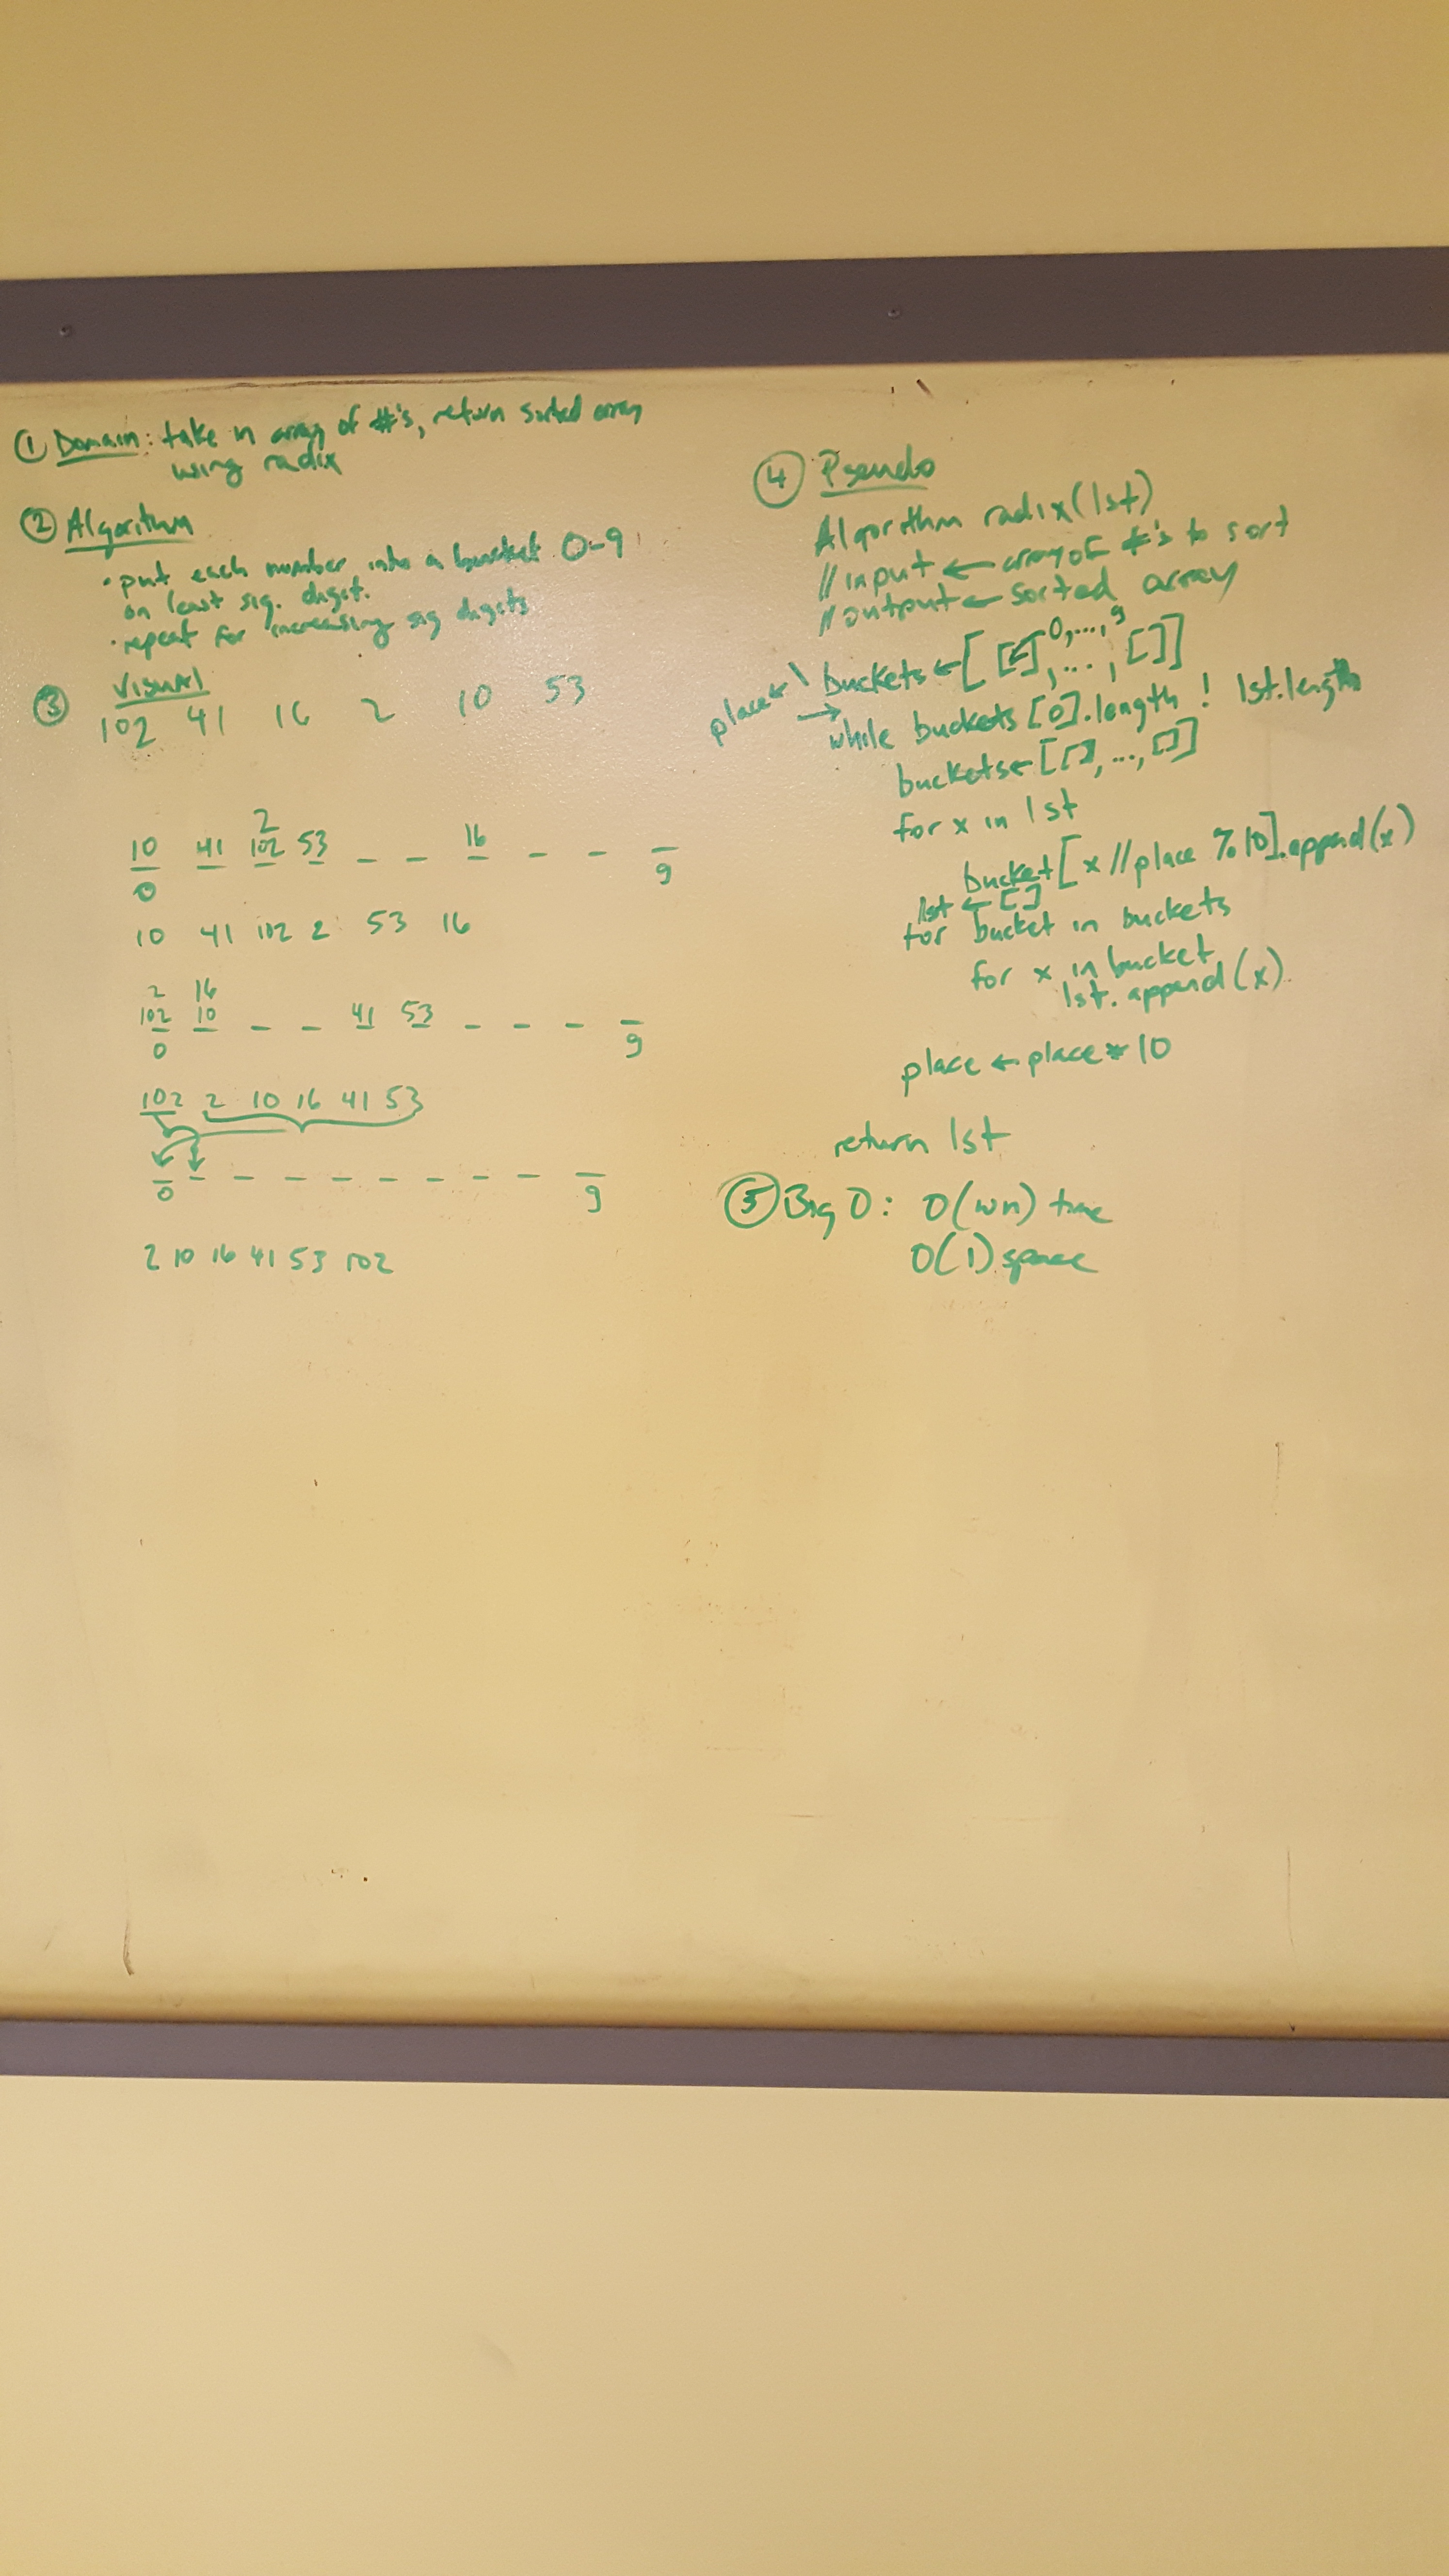 ① Domain: take in array of #'s, return sorted array
using radix
② Algorithm
• put each number into a bucket 0-9
on least sig. digit.
• repeat for increasing sig digits
③ Visual
102 41 16 2 10 53
2
10 41 102 53 _ _ 16 _ _ _
0 9
10 41 102 2 53 16
2 16
102 10 _ _ 41 53 _ _ _ _
0 9
102 2 10 16 41 53
_ _ _ _ _ _ _ _ _ _
0 9
2 10 16 41 53 102
④ Pseudo
Algorithm radix(lst)
// input ← array of #'s to sort
// output ← sorted array
0,...,9
place ← 1 buckets ← [[], ..., []]
→ while buckets[0].length ! lst.length
buckets ← [[], ..., []]
for x in lst
bucket[x//place % 10].append(x)
lst ← []
for bucket in buckets
for x in bucket
lst.append(x)
place ← place * 10
return lst
⑤ Big O: O(wn) time
O(1) space